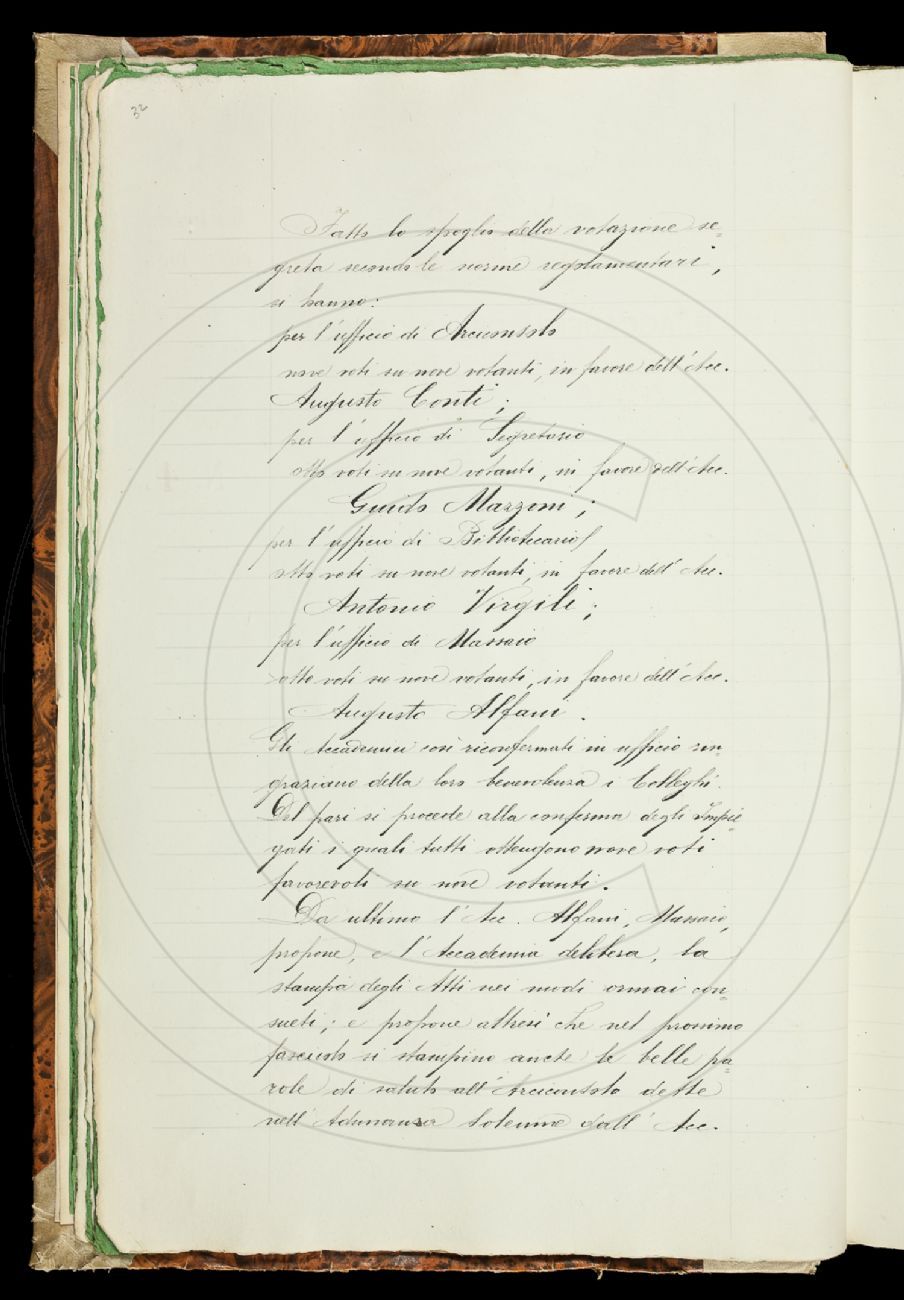 32
Fatto lo spoglio della votazione se=
greta secondo le norme regolamentari,
si hanno:
per l'ufficio di Arciconsolo
nove voti su nove votanti, in favore dell'Acc.
Augusto Conti;
per l'ufficio di Segretario
otto voti su nove votanti, in favore dell'Acc.
Guido Mazzoni;
per l'ufficio di Bibliotecario
otto voti su nove votanti, in favore dell'Acc.
Antonio Virgili;
per l'ufficio di Massaio
otto voti su nove votanti, in favore dell'Acc.
Augusto Alfani.
Gli Accademici così riconfermati in ufficio rin=
graziano della loro benevolenza i Colleghi.
Del pari si procede alla conferma degli Impie=
gati i quali tutti ottengono nove voti
favorevoli su nove votanti.
Da ultimo l'Acc. Alfani, Massaio,
propone, e l'Accademia delibera, la
stampa degli Atti nei modi ormai con=
sueti; e propone altresì che nel prossimo
fascicolo si stampino anche le belle pa=
role di saluto all'Arciconsolo dette
nell'Adunanza solenne dall'Acc.